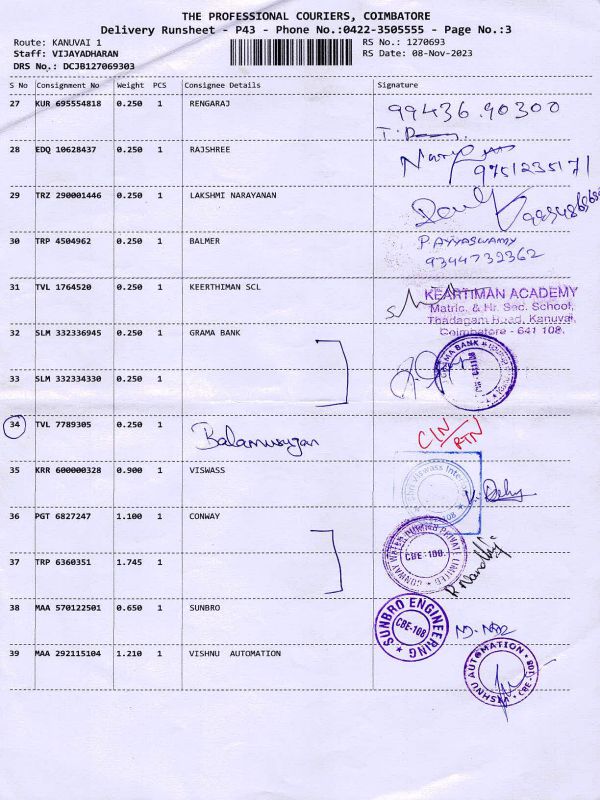 THE PROFESSIONAL COURIERS, COIMBATORE
Delivery Runsheet - P43 - Phone No.:0422-3505555 - Page No.:3
Route: KANUVAI 1 RS No.: 1270693
Staff: VIJAYADHARAN RS Date: 08-Nov-2023
DRS No.: DCJB127069303
S No Consignment No Weight PCS Consignee Details Signature
27 KUR 695554818 0.250 1 RENGARAJ 99436.90300
28 EDQ 10628437 0.250 1 RAJSHREE 9751235171
29 TRZ 290001446 0.250 1 LAKSHMI NARAYANAN
30 TRP 4504962 0.250 1 BALMER P. AYYASWAMY
9344732362
31 TVL 1764520 0.250 1 KEERTHIMAN SCL KEARTIMAN ACADEMY
Matric. & Hr. Sec. School,
Thadagam Road, Kanuvai,
Coimbatore - 641 108.
32 SLM 332336945 0.250 1 GRAMA BANK GRAMA BANK
33 SLM 332334330 0.250 1
34 TVL 7789305 0.250 1 Balamurugan CLN/RTN
35 KRR 600000328 0.900 1 VISWASS Shri Viswass
36 PGT 6827247 1.100 1 CONWAY CONWAY WATER PUMPS PRIVATE LIMITED CBE-108.
37 TRP 6360351 1.745 1
38 MAA 570122501 0.650 1 SUNBRO SUNBRO ENGINEERING CBE-108
39 MAA 292115104 1.210 1 VISHNU AUTOMATION VISHNU AUTOMATION CBE-108